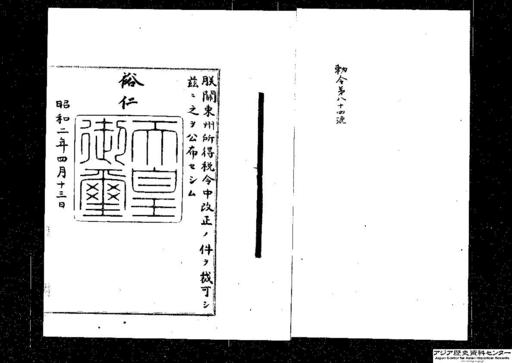 勅令第八十四號
朕關東州所得税令中改正ノ件ヲ裁可シ
茲ニ之ヲ公布セシム
裕仁
天皇
御璽
昭和二年四月十三日
アジア歴史資料センター
Japan Center for Asian Historical Records